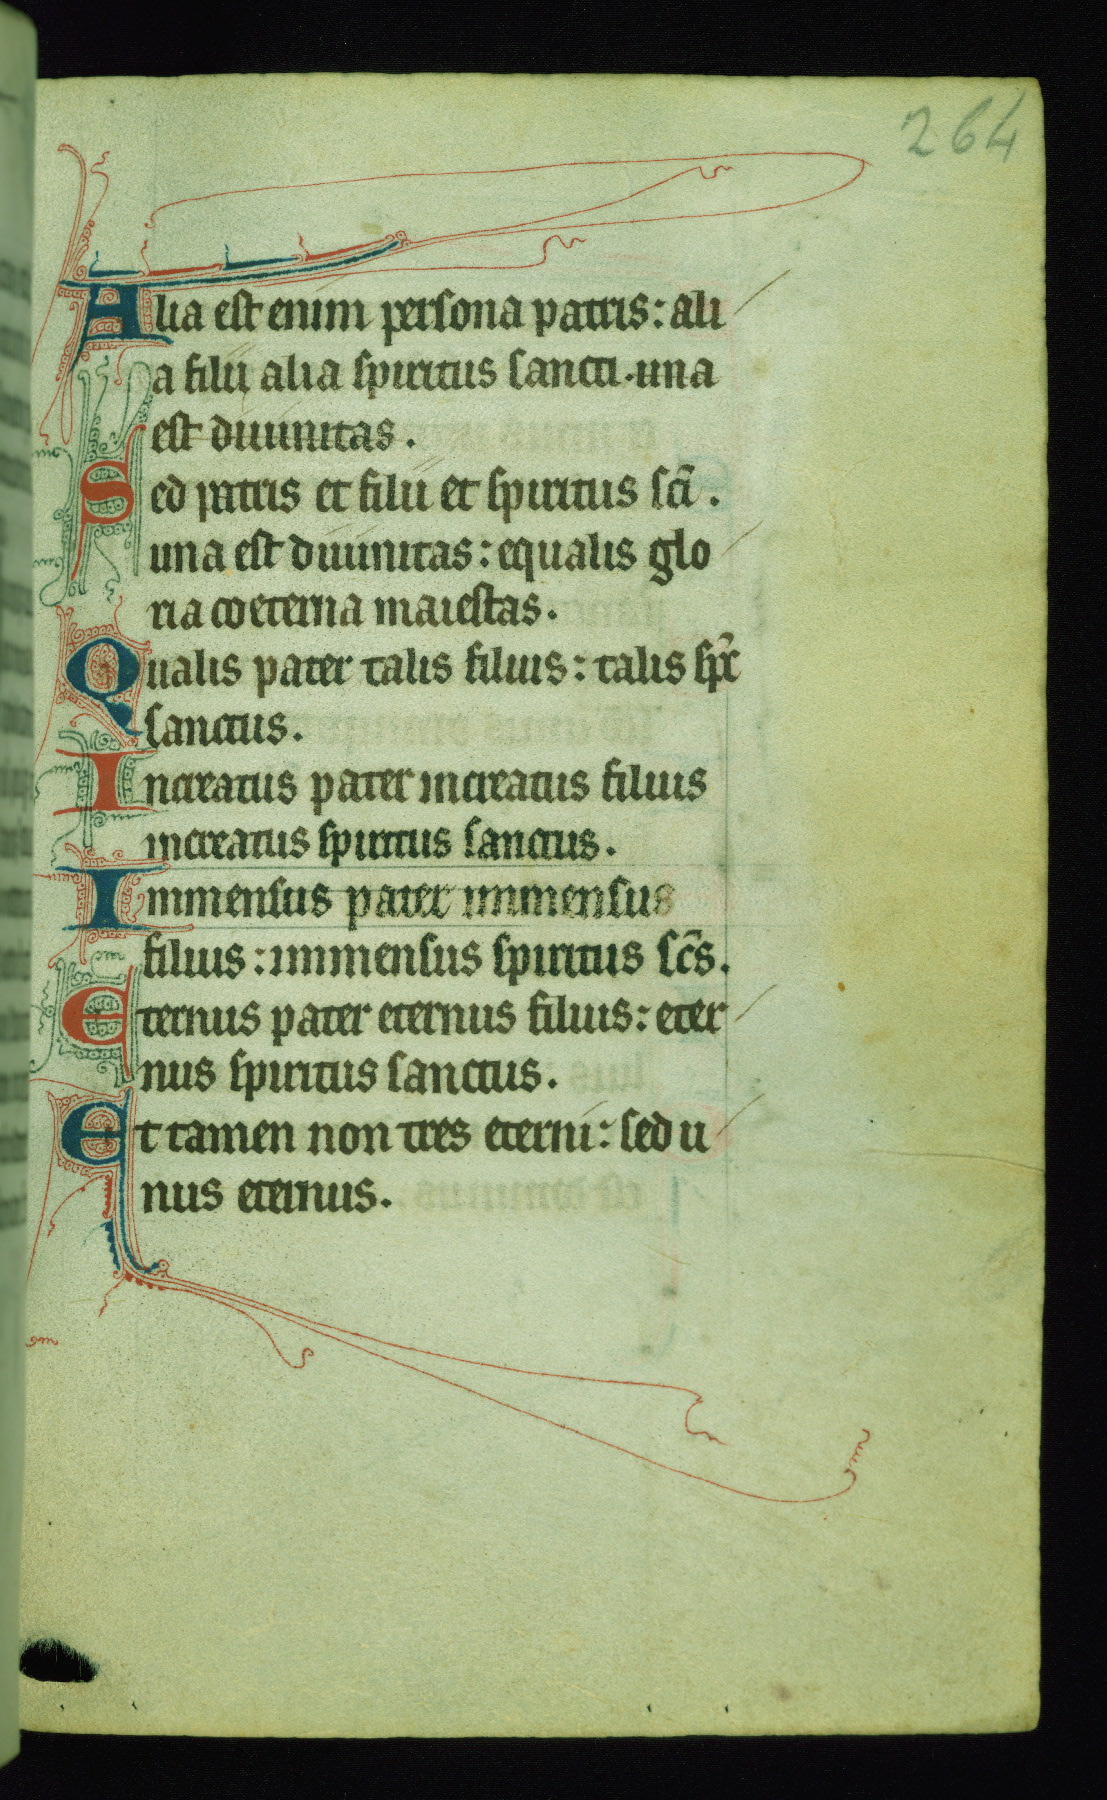 264
Alia est enim persona patris: ali
a filii alia spiritus sancti. una
est diuinitas.
Sed patris et filii et spiritus sc̄i.
una est diuinitas: equalis glo
ria coeterna maiestas.
Qualis pater talis filius: talis sp̄c
sanctus.
Increatus pater increatus filius
increatus spiritus sanctus.
Immensus pater immensus
filius: immensus spiritus sc̄s.
Eternus pater eternus filius: eter
nus spiritus sanctus.
Et tamen non tres eterni: sed u
nus eternus.